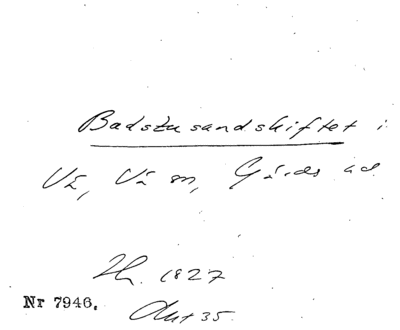 Badstusandskiftet i
Vä, Vä sn, Gärds hd
Th. 1827
Nr 7946.
Akt 35